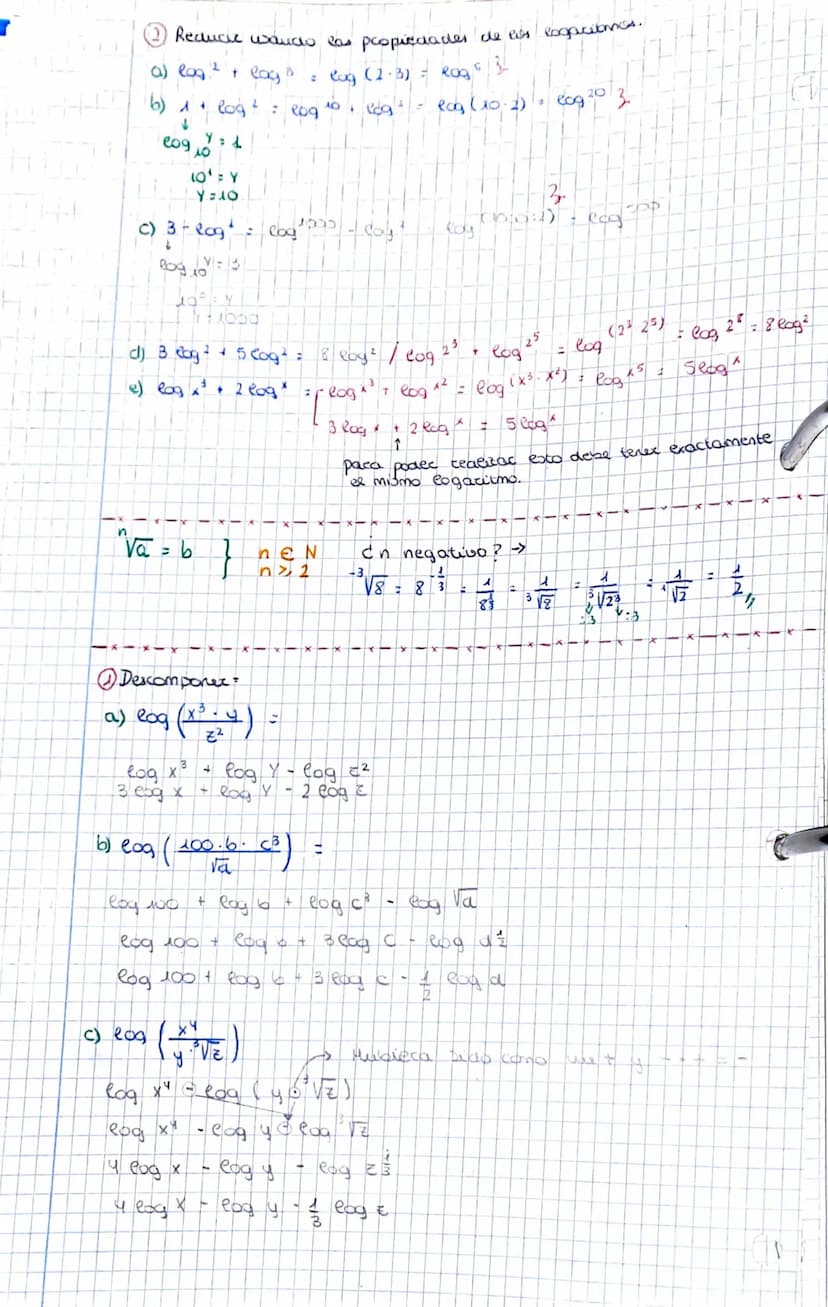 ② Reducir usando las propiedades de los logaritmos.
a) log 2 + log 3 = log (2·3) = log 6
b) 1 + log 2 = log 10 + log 2 = log (10·2) = log 20
↓
log₁₀ y = 1
10¹ = y
y = 10
c) 3 - log 2 = log 1000 - log 2
↓
log₁₀ y = 3
10³ = y
y = 1000
d) 3 log 2 + 5 log 2 = 8 log 2 / log 2³ + log 2⁵ = log (2³ 2⁵) = log 2⁸ = 8 log 2
e) log x³ + 2 log x = log x³ + log x² = log (x³ · x²) = log x⁵ = 5 log x
3 log x + 2 log x = 5 log x
↑
para poder realizar esto debe tener exactamente
el mismo logaritmo.
ⁿ√a = b } n ∈ N ¿n negativo? →
n ≥ 2 ⁻³√8 = 8^(-1/3) = 1/8^(1/3) = 1/³√8 = 1/³√2³ = 1/¹√2 = 1/2
:3 :3
① Descomponer:
a) log (x³ · y / z²) =
log x³ + log y - log z²
3 log x + log y - 2 log z
b) log (100 · b · c³ / √a) =
log 100 + log b + log c³ - log √a
log 100 + log b + 3 log c - log a^(1/2)
log 100 + log b + 3 log c - 1/2 log a
c) log (x⁴ / y · ³√z)
→ Hubiera sido como
log x⁴ - log (y · ³√z)
log x⁴ - log y - log ³√z
4 log x - log y - log z^(1/3)
4 log x - log y - 1/3 log z